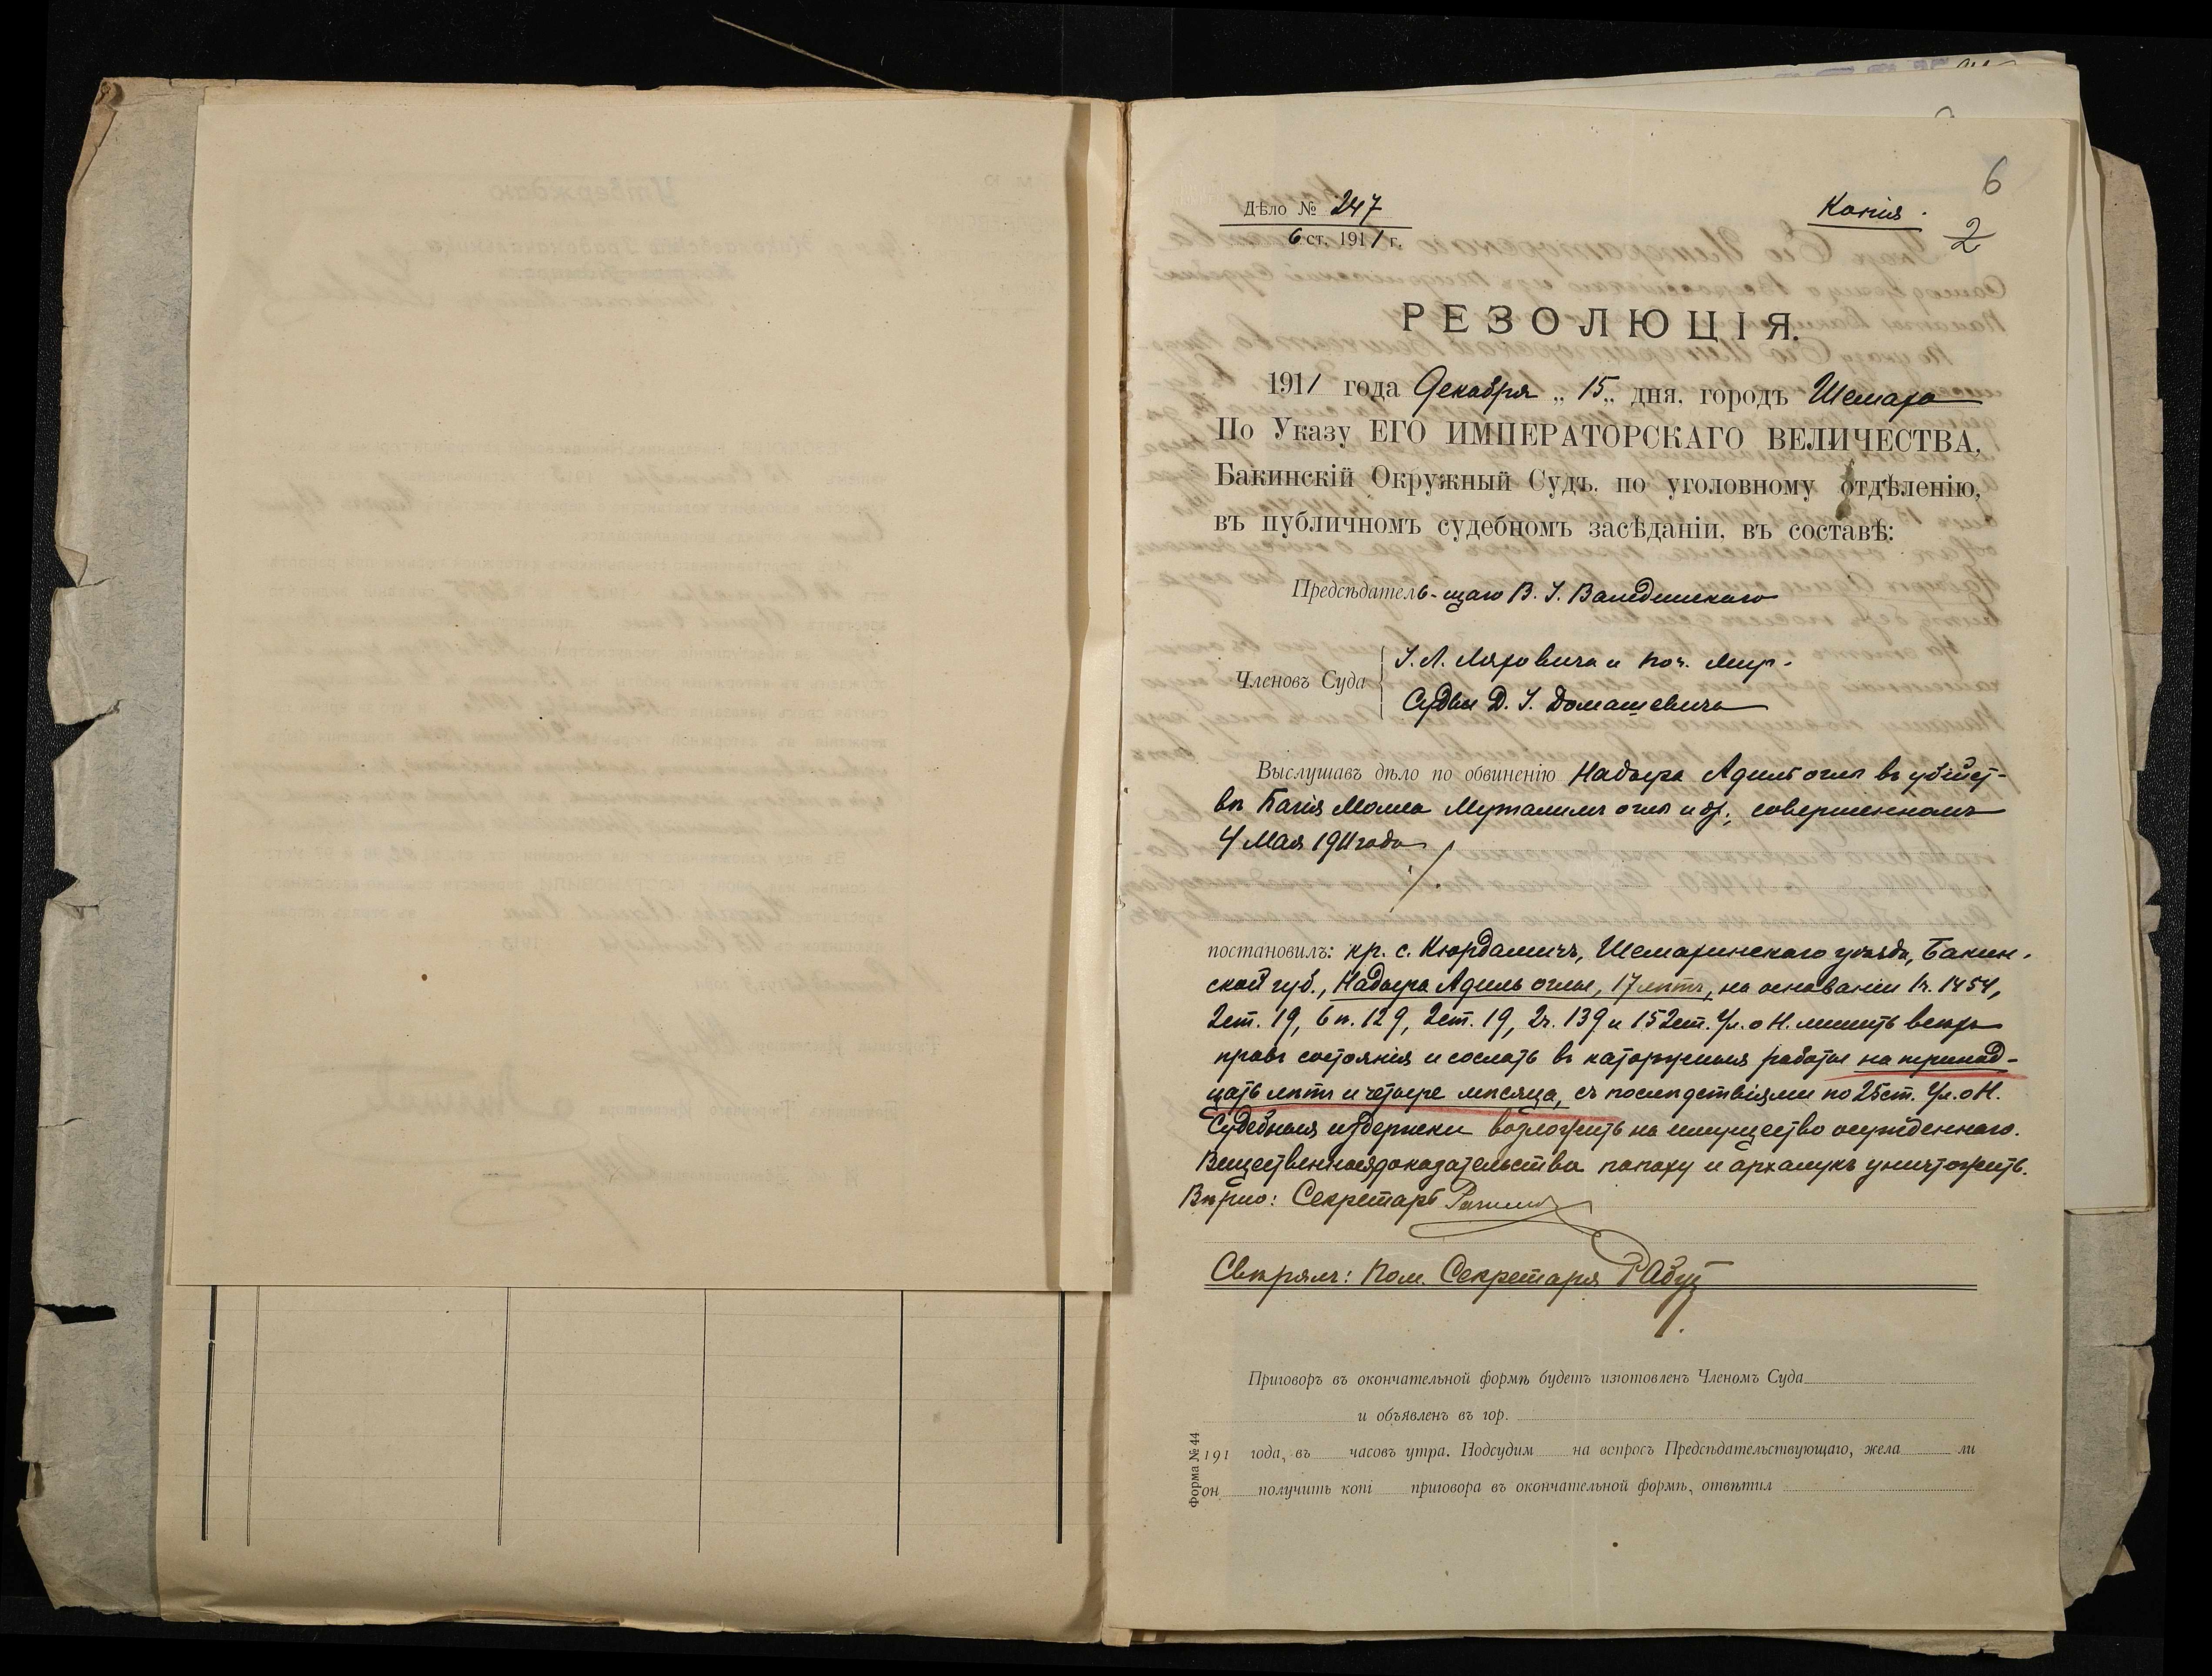 6
Дѣло № 247
Копія.
6 ст. 1911 г.
2
РЕЗОЛЮЦІЯ.
1911 года Декабря „ 15 „ дня, городъ Шемаха
По Указу ЕГО ИМПЕРАТОРСКАГО ВЕЛИЧЕСТВА,
Бакинскій Окружный Судъ, по уголовному отдѣленію,
въ публичномъ судебномъ засѣданіи, въ составѣ:
Предсѣдатель-щаго В. І. Валединскаго
Членовъ Суда
І. Л. Ляховича и поч. мир.
Судьи Д. І. Домашевича
Выслушавъ дѣло по обвиненію Надыра Адиль оглы въ убійст-
вѣ Багія Молла Муталимъ оглы и др., совершенномъ
4 мая 1911 года
постановилъ: кр. с. Кюрдамичъ, Шемахинскаго уѣзда, Бакин-
ской губ., Надыра Адиль оглы, 17 лѣтъ, на основаніи 1ч. 1454,
2ст. 19, 6 п. 129, 2ст. 19, 2ч. 139 и 152ст. Ул. о Н. лишить всѣхъ
правъ состоянія и сослать въ каторжныя работы на тринад-
цать лѣтъ и четыре мѣсяца, съ послѣдствіями по 25ст. Ул. о Н.
Судебныя издержки возложить на имущество осужденнаго.
Вещественныя доказательства папаху и архалукъ уничтожить.
Вѣрно: Секретарь
Свѣрялъ: Пом. Секретаря
Приговоръ въ окончательной формѣ будетъ изготовленъ Членомъ Суда
и объявленъ въ гор.
191 года, въ часовъ утра. Подсудим на вопросъ Предсѣдательствующаго, жела ли
он получить копі приговора въ окончательной формѣ, отвѣтил
Форма № 44